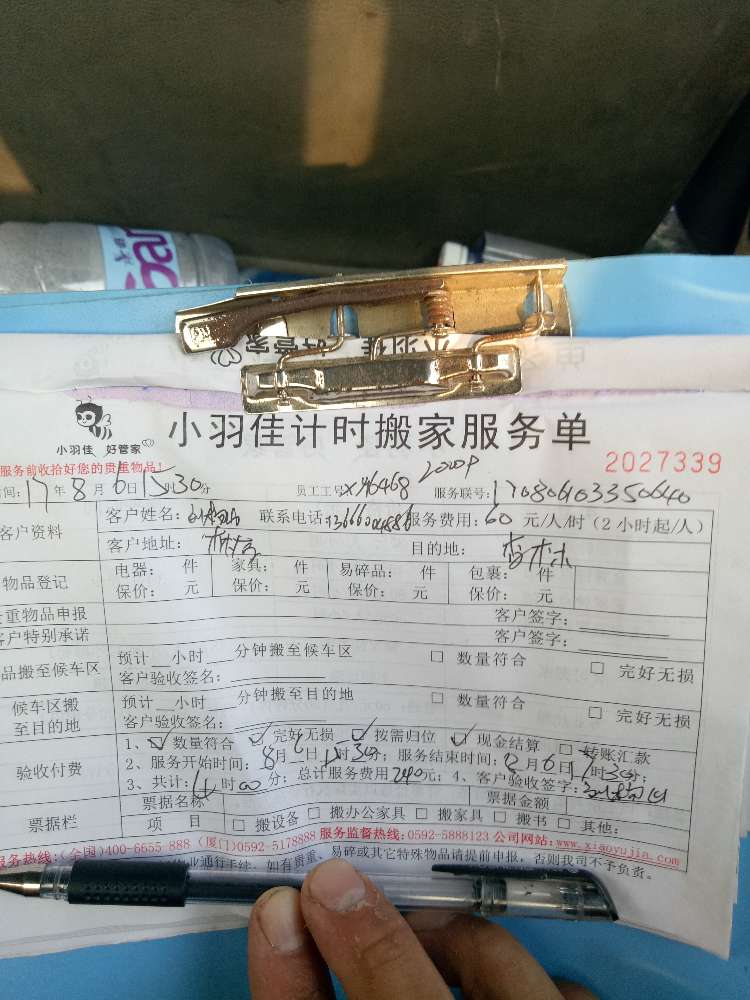 小羽佳 好管家
小羽佳 好管家
小羽佳计时搬家服务单
服务前收拾好您的贵重物品!
2027339
间: 17年8月6日15时30分 员工工号 服务联号: 170806103350640
客户资料 客户姓名: 联系电话: 服务费用: 60 元/人/时 (2小时起/人)
客户地址: 目的地:
物品登记 电器: 件 家具: 件 易碎品: 件 包裹: 件
保价: 元 保价: 元 保价: 元 保价: 元
重物品申报 客户签字:
客户特别承诺 客户签字:
品搬至候车区 预计__小时__分钟搬至候车区 □ 数量符合 □ 完好无损
客户验收签名:
候车区搬至目的地 预计__小时__分钟搬至目的地 □ 数量符合 □ 完好无损
客户验收签名:
验收付费 1、☑ 数量符合 ☑ 完好无损 ☑ 按需归位 ☑ 现金结算 □ 转账汇款
2、服务开始时间: 8月6日 时30分; 服务结束时间: 8月6日 时30分;
3、共计: 4时00分; 总计服务费用240元; 4、客户验收签字:
票据栏 票据名称 票据金额
项 目 □ 搬设备 □ 搬办公家具 □ 搬家具 □ 搬书 □ 其他:
服务热线:(全国)400-6655-888 (厦门)0592-5178888 服务监督热线:0592-5888123 公司网站:www.xiaoyujin.com
业通行手续, 如有贵重、易碎或其它特殊物品请提前申报, 否则我司不予负责。